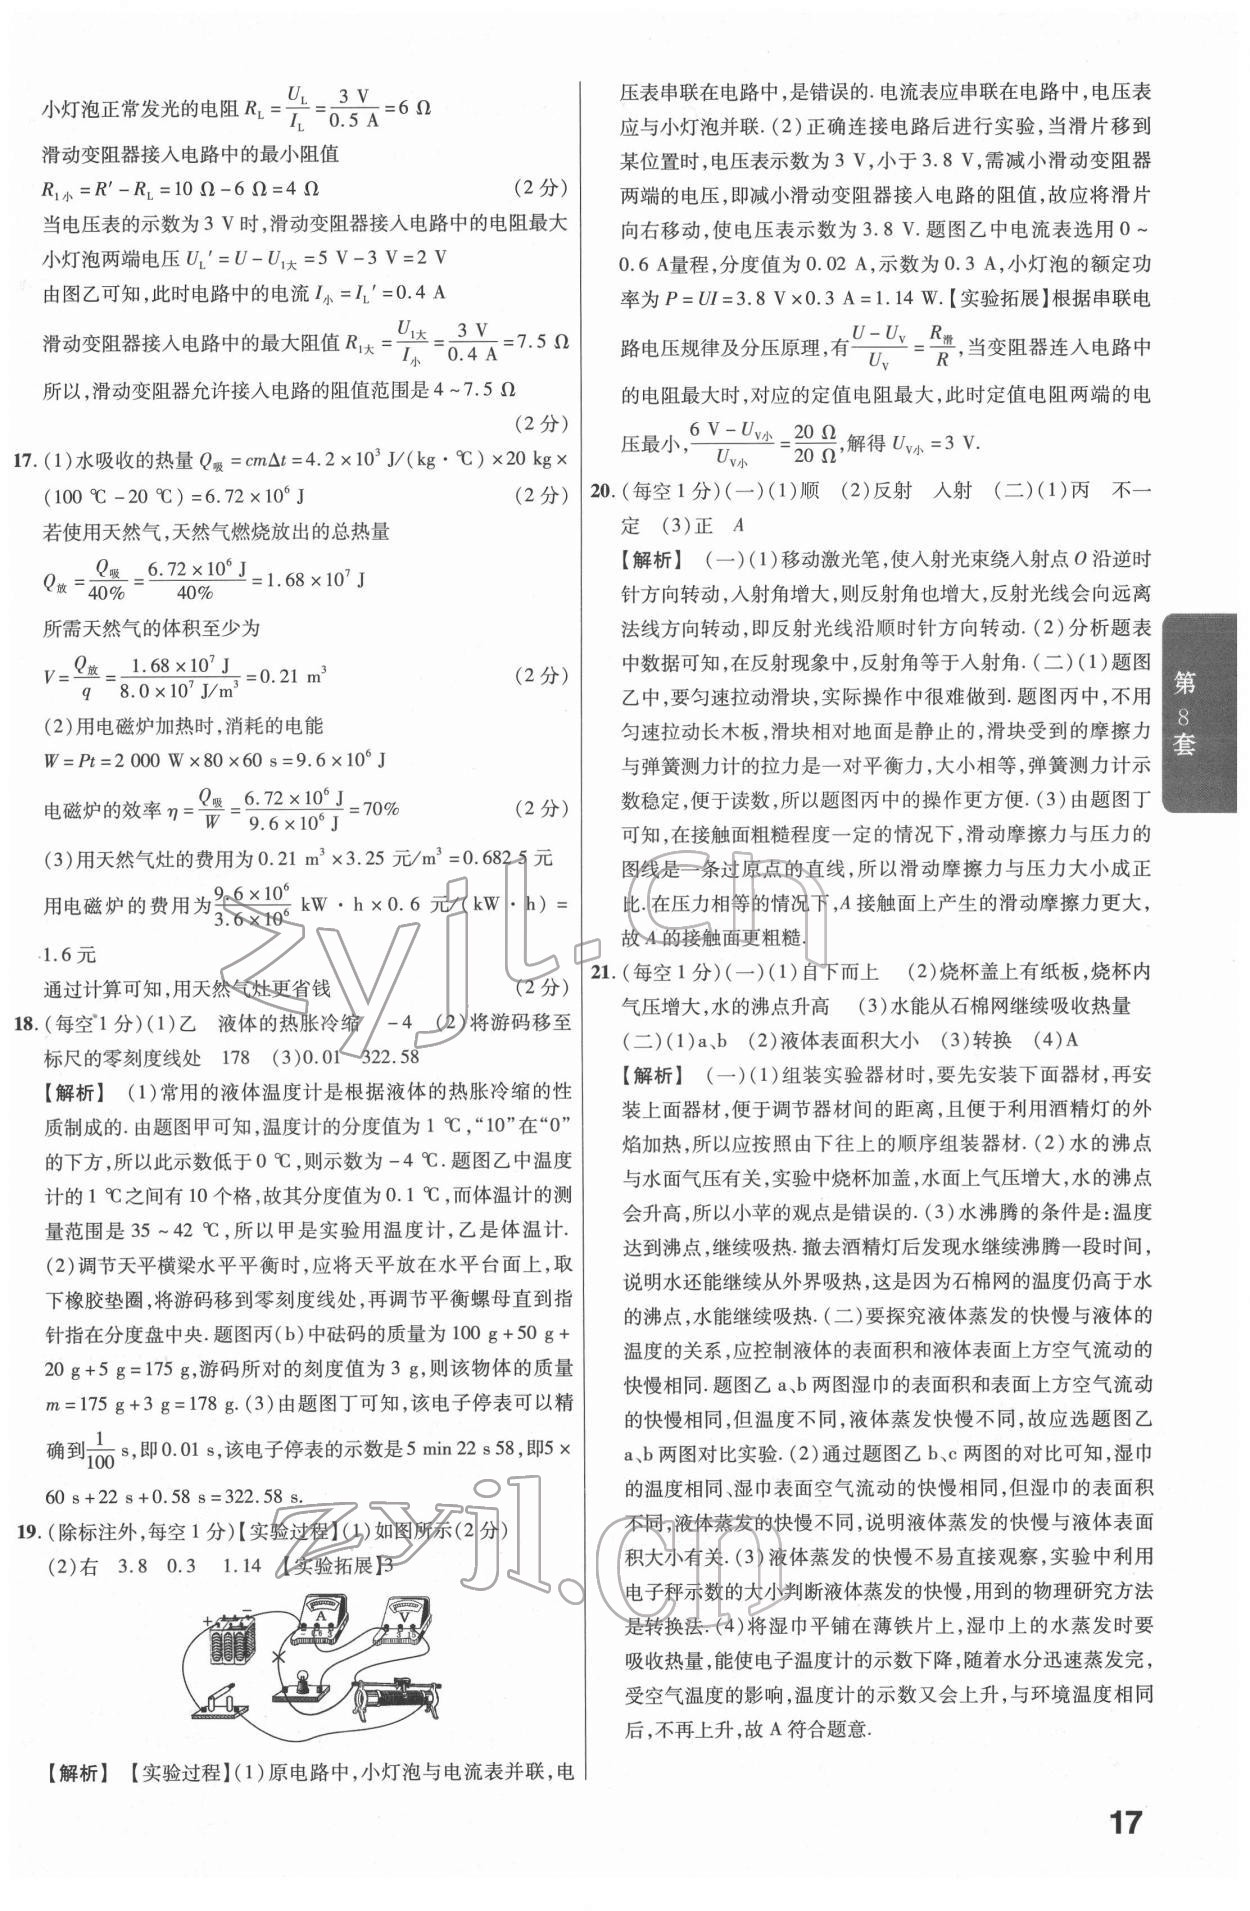 小灯泡正常发光的电阻 R_L = U_L/I_L = 3 V/0.5 A = 6 Ω
滑动变阻器接入电路中的最小阻值
R_1小 = R′ − R_L = 10 Ω − 6 Ω = 4 Ω (2 分)
当电压表的示数为 3 V 时,滑动变阻器接入电路中的电阻最大
小灯泡两端电压 U_L′ = U − U_1大 = 5 V − 3 V = 2 V
由图乙可知,此时电路中的电流 I_小 = I_L′ = 0.4 A
滑动变阻器接入电路中的最大阻值 R_1大 = U_1大/I_小 = 3 V/0.4 A = 7.5 Ω
所以,滑动变阻器允许接入电路的阻值范围是 4 ~ 7.5 Ω
(2 分)
17. (1)水吸收的热量 Q_吸 = cmΔt = 4.2 × 10³ J/(kg · ℃) × 20 kg ×
(100 ℃ − 20 ℃) = 6.72 × 10⁶ J (2 分)
若使用天然气,天然气燃烧放出的总热量
Q_放 = Q_吸/40% = 6.72 × 10⁶ J/40% = 1.68 × 10⁷ J
所需天然气的体积至少为
V = Q_放/q = 1.68 × 10⁷ J/8.0 × 10⁷ J/m³ = 0.21 m³ (2 分)
(2)用电磁炉加热时,消耗的电能
W = Pt = 2 000 W × 80 × 60 s = 9.6 × 10⁶ J
电磁炉的效率 η = Q_吸/W = 6.72 × 10⁶ J/9.6 × 10⁶ J = 70% (2 分)
(3)用天然气灶的费用为 0.21 m³ × 3.25 元/m³ = 0.682 5 元
用电磁炉的费用为 9.6 × 10⁶/3.6 × 10⁶ kW · h × 0.6 元/(kW · h) =
1.6 元
通过计算可知,用天然气灶更省钱 (2 分)
18. (每空 1 分)(1)乙 液体的热胀冷缩 −4 (2)将游码移至
标尺的零刻度线处 178 (3)0.01 322.58
【解析】 (1)常用的液体温度计是根据液体的热胀冷缩的性
质制成的. 由题图甲可知,温度计的分度值为 1 ℃,“10”在“0”
的下方,所以此示数低于 0 ℃,则示数为 −4 ℃. 题图乙中温度
计的 1 ℃之间有 10 个格,故其分度值为 0.1 ℃,而体温计的测
量范围是 35 ~ 42 ℃,所以甲是实验用温度计,乙是体温计.
(2)调节天平横梁水平平衡时,应将天平放在水平台面上,取
下橡胶垫圈,将游码移到零刻度线处,再调节平衡螺母直到指
针指在分度盘中央. 题图丙(b)中砝码的质量为 100 g + 50 g +
20 g + 5 g = 175 g,游码所对的刻度值为 3 g,则该物体的质量
m = 175 g + 3 g = 178 g. (3)由题图丁可知,该电子停表可以精
确到 1/100 s,即 0.01 s,该电子停表的示数是 5 min 22 s 58,即 5 ×
60 s + 22 s + 0.58 s = 322.58 s.
19. (除标注外,每空 1 分)【实验过程】(1)如图所示(2 分)
(2)右 3.8 0.3 1.14 【实验拓展】3
+ − A V
【解析】 【实验过程】(1)原电路中,小灯泡与电流表并联,电
压表串联在电路中,是错误的. 电流表应串联在电路中,电压表
应与小灯泡并联. (2)正确连接电路后进行实验,当滑片移到
某位置时,电压表示数为 3 V,小于 3.8 V,需减小滑动变阻器
两端的电压,即减小滑动变阻器接入电路的阻值,故应将滑片
向右移动,使电压表示数为 3.8 V. 题图乙中电流表选用 0 ~
0.6 A量程,分度值为 0.02 A,示数为 0.3 A,小灯泡的额定功
率为 P = UI = 3.8 V × 0.3 A = 1.14 W.【实验拓展】根据串联电
路电压规律及分压原理,有 U − U_V/U_V = R_滑/R,当变阻器连入电路中
的电阻最大时,对应的定值电阻最大,此时定值电阻两端的电
压最小, 6 V − U_V小/U_V小 = 20 Ω/20 Ω,解得 U_V小 = 3 V.
20. (每空 1 分)(一)(1)顺 (2)反射 入射 (二)(1)丙 不一
定 (3)正 A
【解析】 (一)(1)移动激光笔,使入射光束绕入射点 O 沿逆时
针方向转动,入射角增大,则反射角也增大,反射光线会向远离
法线方向转动,即反射光线沿顺时针方向转动. (2)分析题表
中数据可知,在反射现象中,反射角等于入射角. (二)(1)题图
乙中,要匀速拉动滑块,实际操作中很难做到. 题图丙中,不用
匀速拉动长木板,滑块相对地面是静止的,滑块受到的摩擦力
与弹簧测力计的拉力是一对平衡力,大小相等,弹簧测力计示
数稳定,便于读数,所以题图丙中的操作更方便. (3)由题图丁
可知,在接触面粗糙程度一定的情况下,滑动摩擦力与压力的
图线是一条过原点的直线,所以滑动摩擦力与压力大小成正
比. 在压力相等的情况下,A 接触面上产生的滑动摩擦力更大,
故 A 的接触面更粗糙.
21. (每空 1 分)(一)(1)自下而上 (2)烧杯盖上有纸板,烧杯内
气压增大,水的沸点升高 (3)水能从石棉网继续吸收热量
(二)(1)a、b (2)液体表面积大小 (3)转换 (4)A
【解析】 (一)(1)组装实验器材时,要先安装下面器材,再安
装上面器材,便于调节器材间的距离,且便于利用酒精灯的外
焰加热,所以应按照由下往上的顺序组装器材. (2)水的沸点
与水面气压有关,实验中烧杯加盖,水面上气压增大,水的沸点
会升高,所以小苹的观点是错误的. (3)水沸腾的条件是:温度
达到沸点,继续吸热. 撤去酒精灯后发现水继续沸腾一段时间,
说明水还能继续从外界吸热,这是因为石棉网的温度仍高于水
的沸点,水能继续吸热. (二)要探究液体蒸发的快慢与液体的
温度的关系,应控制液体的表面积和液体表面上方空气流动的
快慢相同. 题图乙 a、b 两图湿巾的表面积和表面上方空气流动
的快慢相同,但温度不同,液体蒸发快慢不同,故应选题图乙
a、b 两图对比实验. (2)通过题图乙 b、c 两图的对比可知,湿巾
的温度相同、湿巾表面空气流动的快慢相同,但湿巾的表面积
不同,液体蒸发的快慢不同,说明液体蒸发的快慢与液体表面
积大小有关. (3)液体蒸发的快慢不易直接观察,实验中利用
电子秤示数的大小判断液体蒸发的快慢,用到的物理研究方法
是转换法. (4)将湿巾平铺在薄铁片上,湿巾上的水蒸发时要
吸收热量,能使电子温度计的示数下降,随着水分迅速蒸发完,
受空气温度的影响,温度计的示数又会上升,与环境温度相同
后,不再上升,故 A 符合题意.
第8套
17
zyjl.cn
zyjl.cn